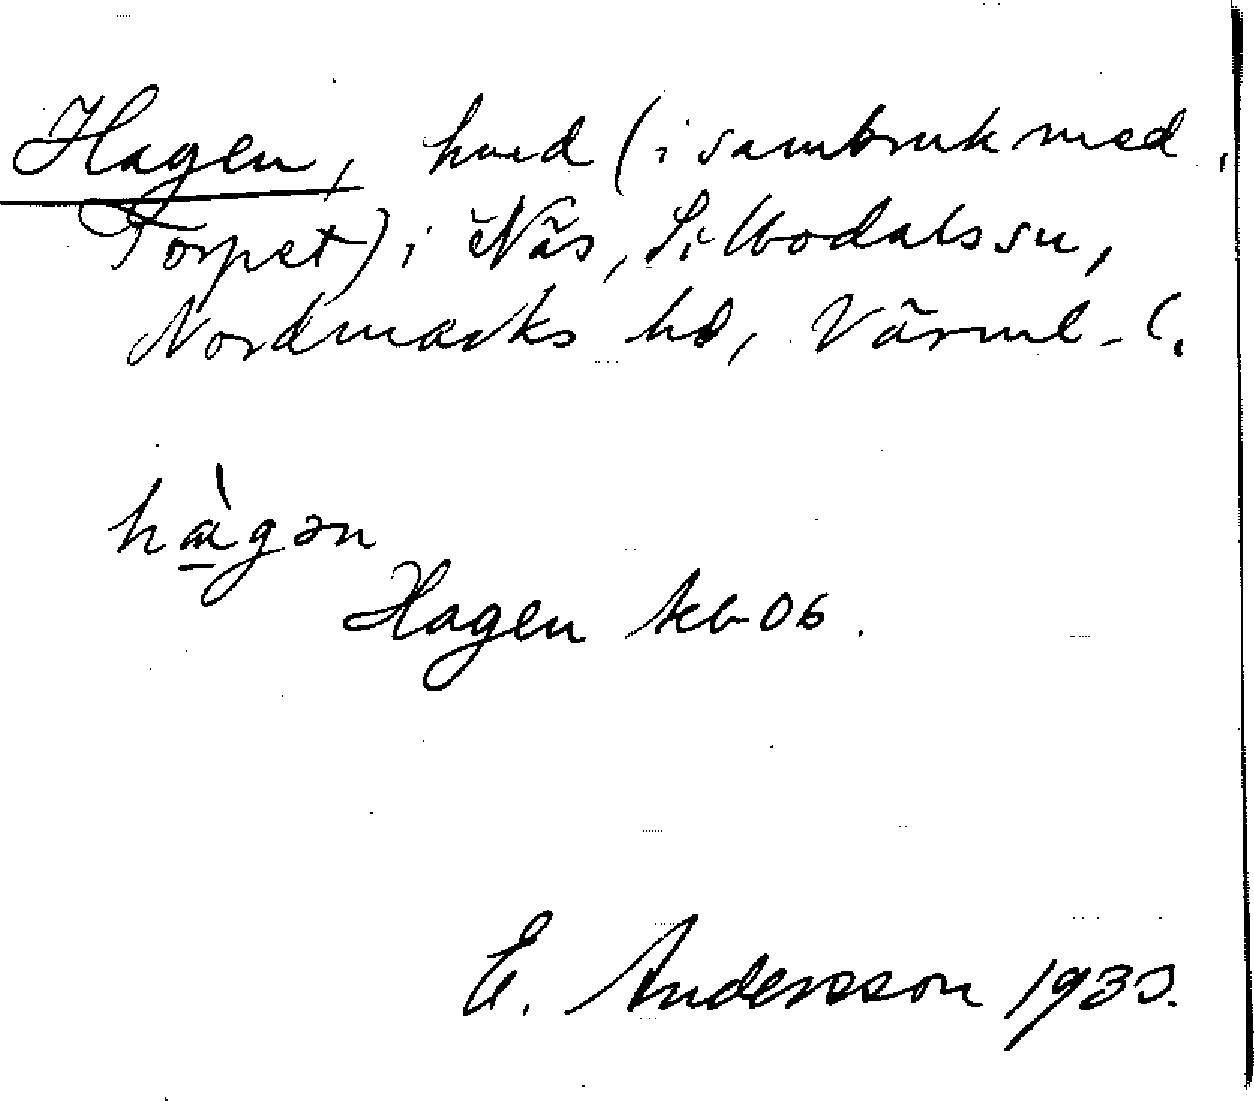 Hagen, hmd (i sambruk med
Torpet) i Näs, Silbodals sn,
Nordmarks hd, Värml. l.
hàgən
Hagen Akb 06.
E. Andersson 1933.